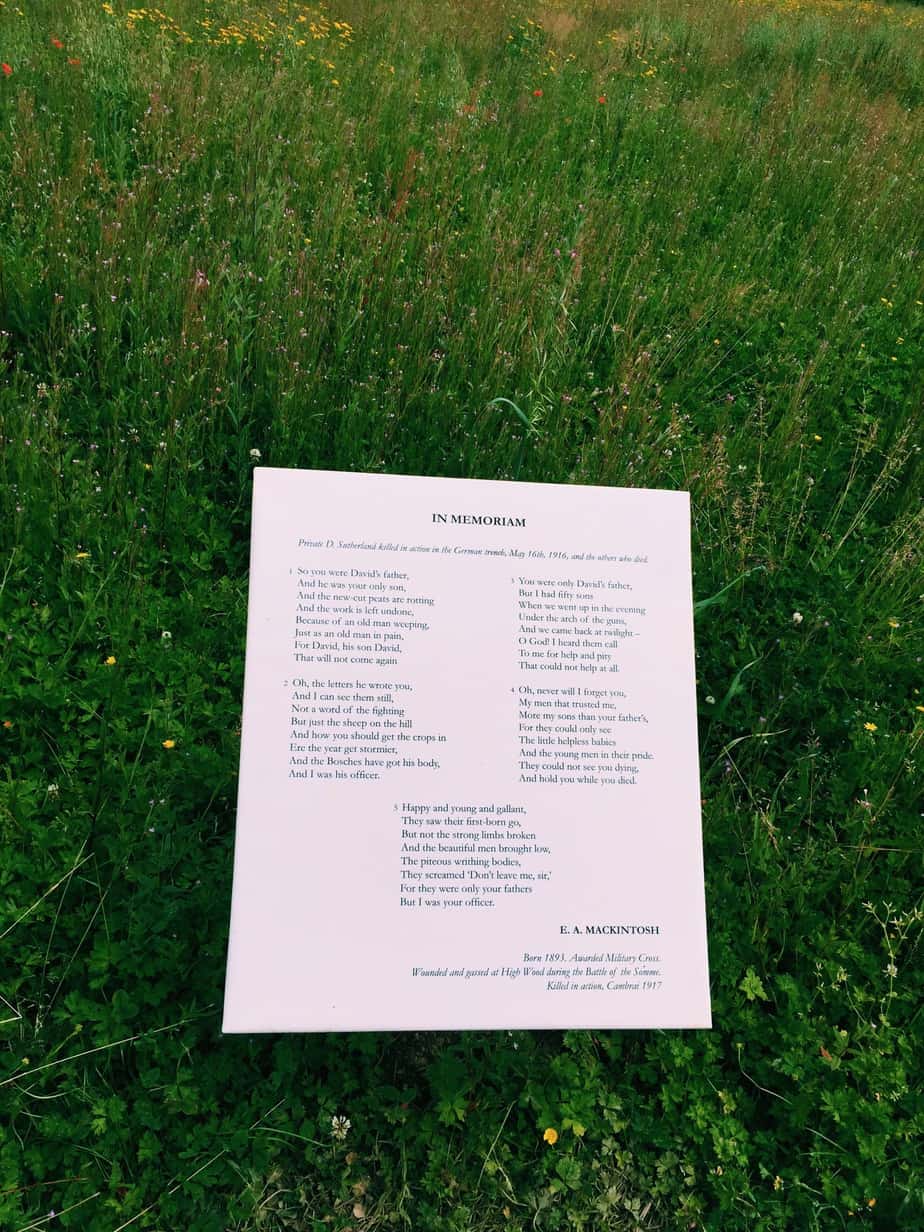 IN MEMORIAM
Private D. Sutherland killed in action in the German trench, May 16th, 1916, and the others who died.
1 So you were David's father,
And he was your only son,
And the new-cut peats are rotting
And the work is left undone,
Because of an old man weeping,
Just as an old man in pain,
For David, his son David,
That will not come again
2 Oh, the letters he wrote you,
And I can see them still,
Not a word of the fighting
But just the sheep on the hill
And how you should get the crops in
Ere the year get stormier,
And the Bosches have got his body,
And I was his officer.
3 You were only David's father,
But I had fifty sons
When we went up in the evening
Under the arch of the guns,
And we came back at twilight –
O God! I heard them call
To me for help and pity
That could not help at all.
4 Oh, never will I forget you,
My men that trusted me,
More my sons than your father's,
For they could only see
The little helpless babies
And the young men in their pride.
They could not see you dying,
And hold you while you died.
5 Happy and young and gallant,
They saw their first-born go,
But not the strong limbs broken
And the beautiful men brought low,
The piteous writhing bodies,
They screamed 'Don't leave me, sir,'
For they were only your fathers
But I was your officer.
E. A. MACKINTOSH
Born 1893. Awarded Military Cross.
Wounded and gassed at High Wood during the Battle of the Somme.
Killed in action, Cambrai 1917